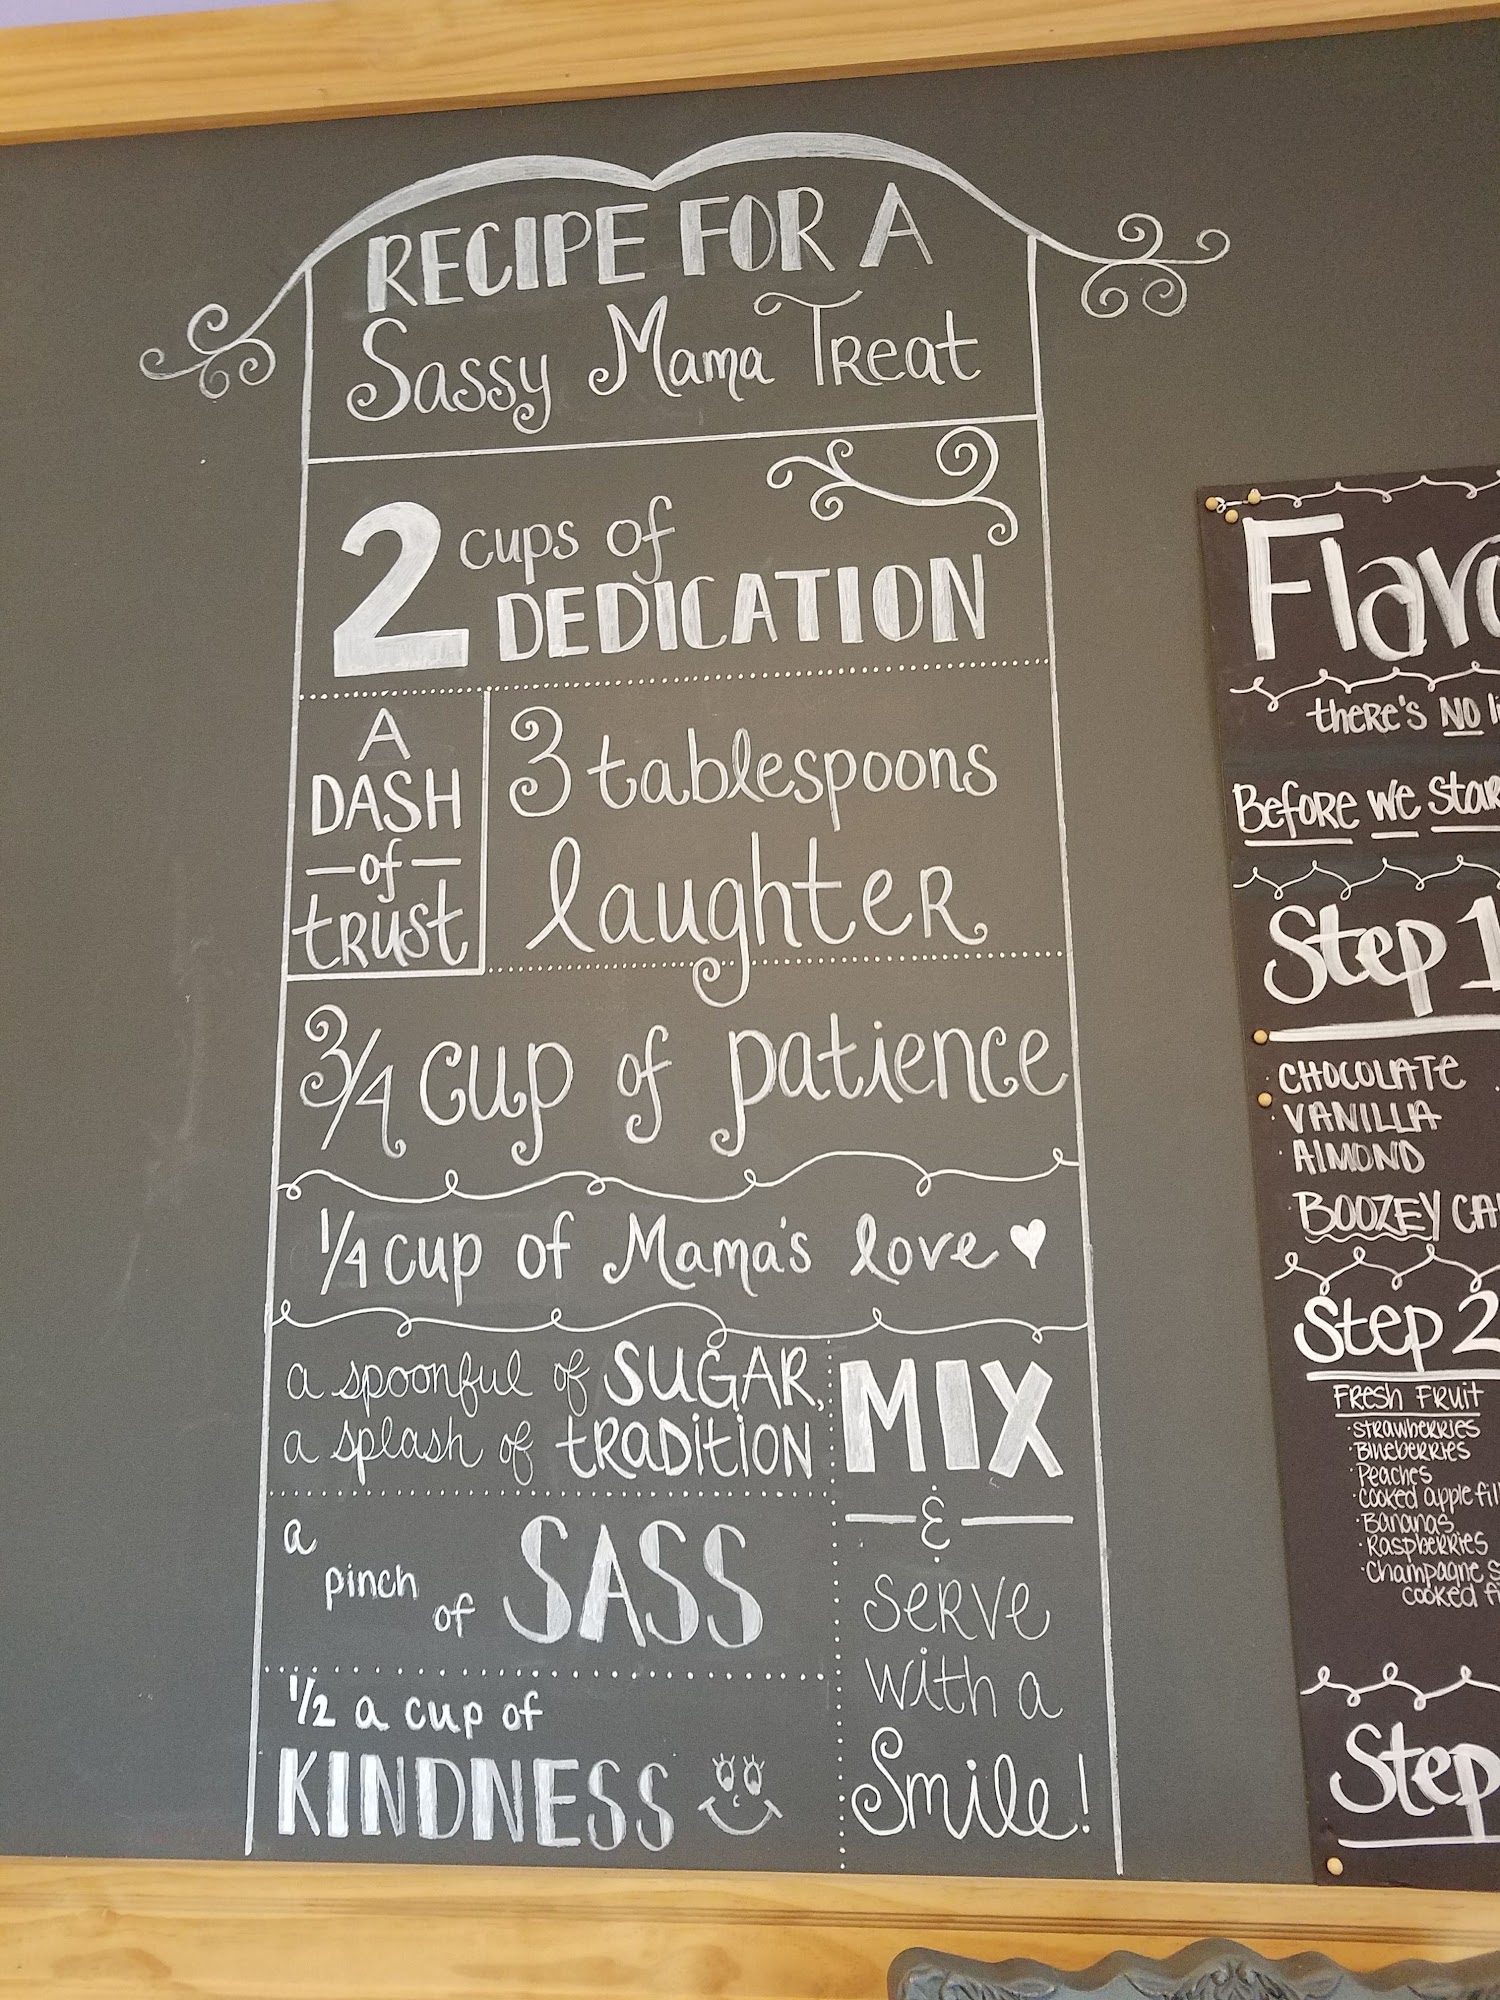 RECIPE FOR A
Sassy Mama Treat
2 cups of
DEDICATION
A
DASH
of
trust
3 tablespoons
laughter
3/4 cup of patience
1/4 cup of Mama's love
a spoonful of SUGAR,
a splash of tradition
a
pinch
of SASS
1/2 a cup of
KINDNESS
MIX
&
serve
with a
Smile!
there's NO
Before we
Step 1
CHOCOLATE
VANILLA
ALMOND
BOOZEY
Step 2
FRESH FRUIT
Strawberries
Blueberries
Peaches
cooked apple
Bananas
Raspberries
Champagne
cooked
Step